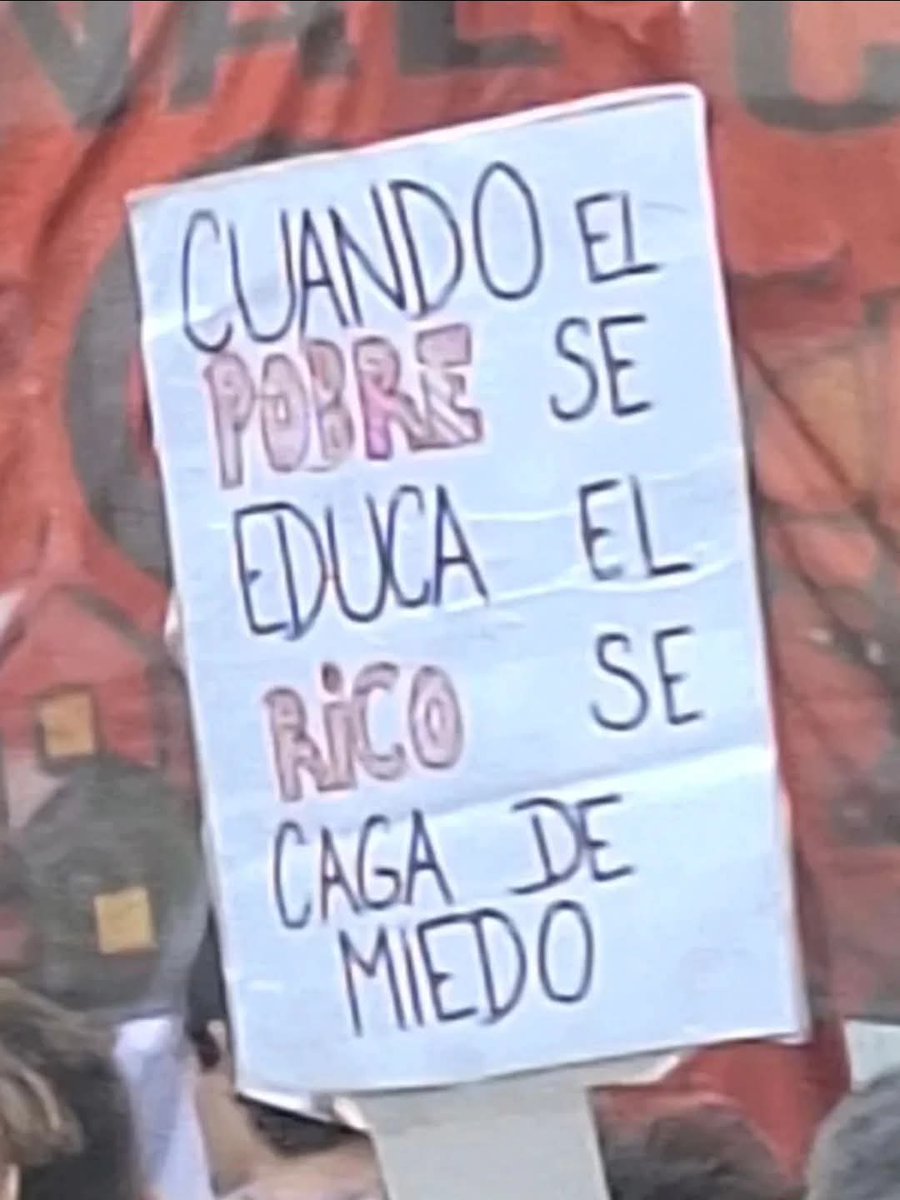 CUANDO EL
POBRE SE
EDUCA EL
RiCO SE
CAGA DE
MIEDO